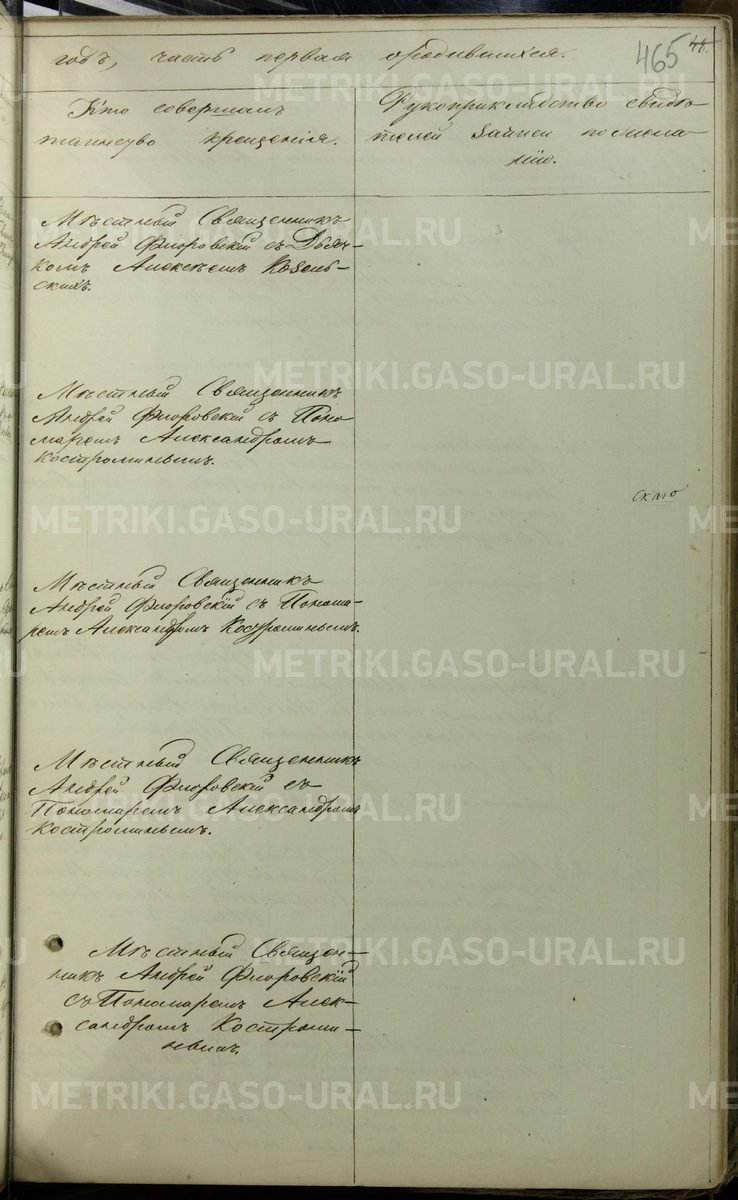 465 48.
годъ, часть первая о родившихся.
Кто совершалъ
таинство крещенія.
Рукоприкладство свидѣ-
телей записи по жела-
нію.
Мѣстный Священникъ
Андрей Флоровскій съ Дьяч-
комъ Алексѣемъ
Мѣстный Священникъ
Андрей Флоровскій съ Поно
маремъ Александромъ
Костроминымъ.
скаго
Мѣстный Священникъ
Андрей Флоровскій съ Понома-
ремъ Александромъ Костроминымъ.
Мѣстный Священникъ
Андрей Флоровскій съ
Пономаремъ Александромъ
Костроминымъ.
Мѣстный Священ-
никъ Андрей Флоровскій
съ Пономаремъ Алек-
сандромъ Костроми-
нымъ.
METRIKI.GASO-URAL.RU